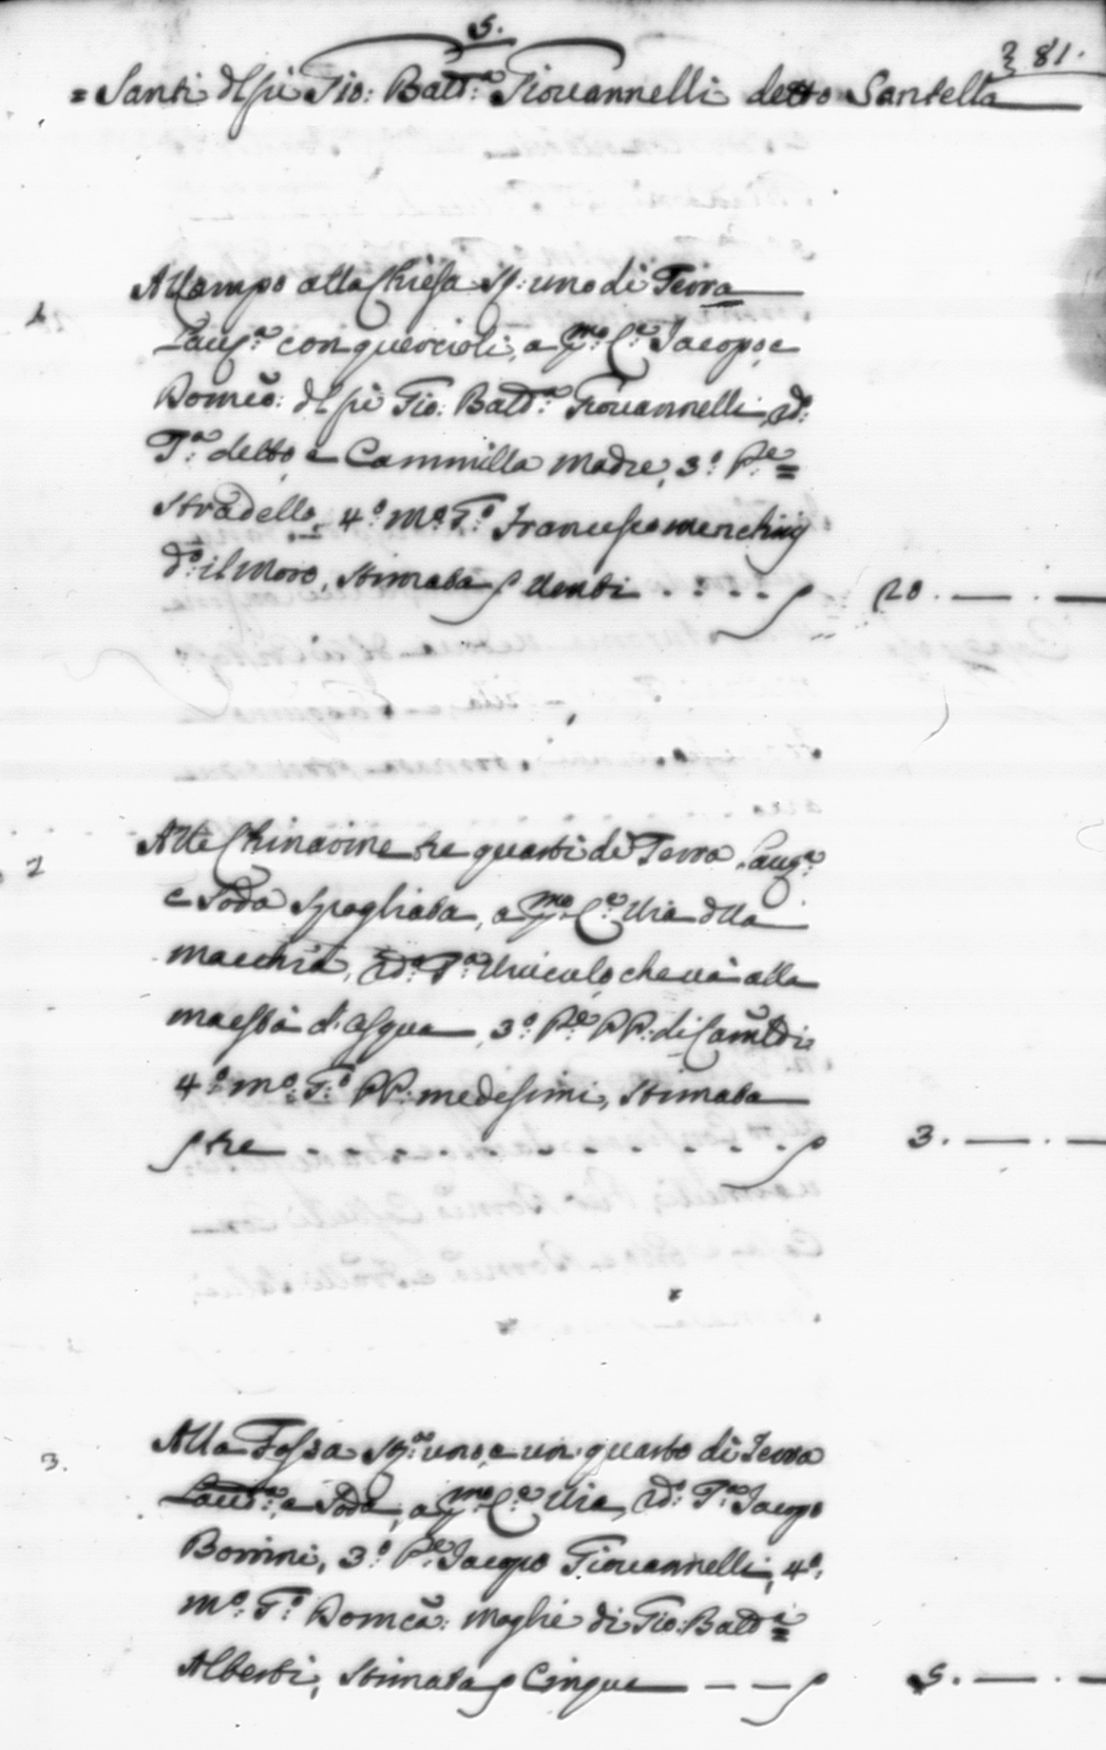 S.
381.
= Santi dl qū Gio: Batt:ª Giovannelli detto Santella
1
Al Campo alla Chiesa st: uno di Terra
Laug:ª con quercioli, a p:mo C:ª Jacopo, e
Domco: dl qū Gio: Batt:ª Giovannelli, 2d:º
T:ª detto, e Cammilla Madre, 3:º P:e =
Stradello, 4:º Mº T:º Francesco Menchinj
dº: il Moro, stimata p Venti . . . . p 20. — . —
2
Alle Chinarine tre quarti di Terra Laug:ª
e Soda Spogliata, a p:mo C:ª Via dlla
Macchia, 2d:º T:ª Viicculo, che va alla
Maestà d'Acqua, 3:º P:e PP: di Camldi:
4:º Mº: T:º PP: medesimi, Stimata
p tre . . . . . . . . . . p 3. — . —
3.
Alla Fossa St:ro uno, e un quarto di Terra
Laur:ª, e Soda, a p:mo C:ª Via, 2d:º T:ª Jacopo
Bonini, 3:º P:e Jacopo Giovannelli, 4:º
Mº: T:º Domcā: Moglie di Gio: Batt:ª =
Alberti, Stimata p Cinque — — p 5. — . —